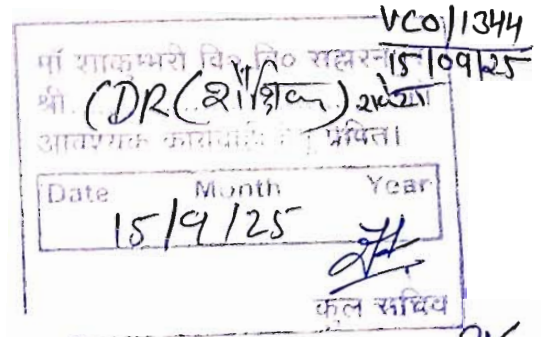 VCO/1344
15/09/25
माँ शाकुम्भरी वि० वि० सहारनपुर
श्री.
(DR (शैक्षिक)
आवश्यक कार्यवाही हेतु प्रेषित।
Date Month Year
15/9/25
कुल सचिव